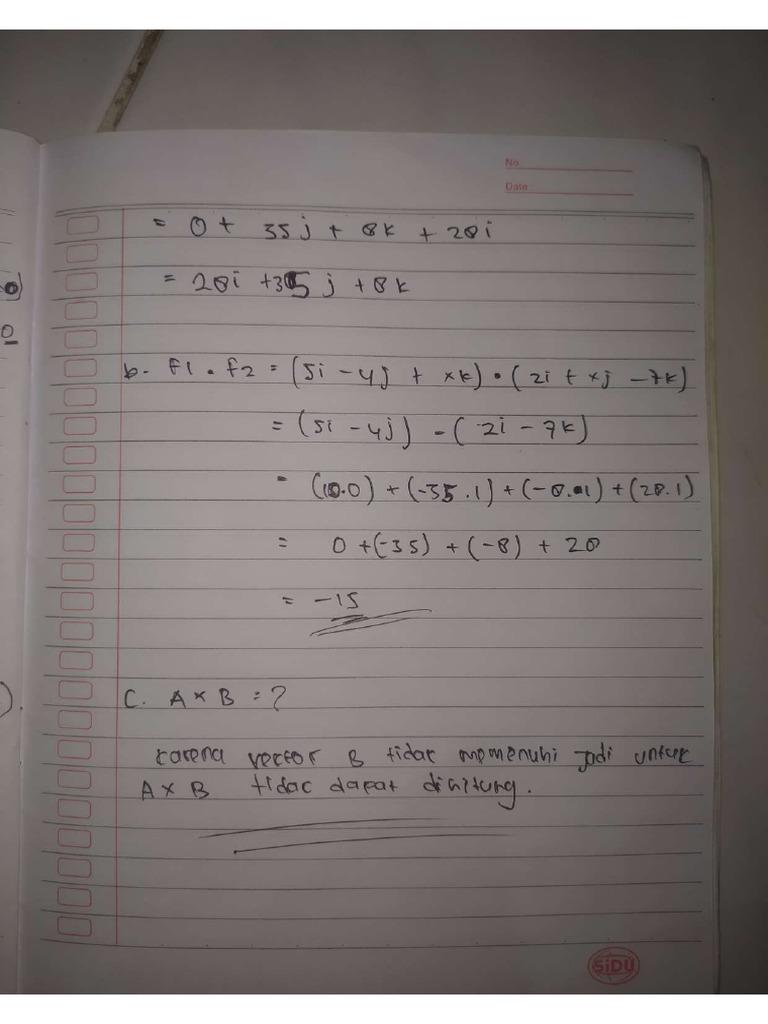 No
Date
= 0 + 35j + 8k + 28i
= 28i + 35j + 8k
b. F1 . F2 = (5i - 4j + xk) . (2i + xj - 7k)
= (5i - 4j) - (2i - 7k)
= (10.0) + (-35.1) + (-8.1) + (28.1)
= 0 + (-35) + (-8) + 28
= -15
C. A x B = ?
karena vector B tidak memenuhi jadi untuk
A x B tidac dapat dihitung.
SiDU